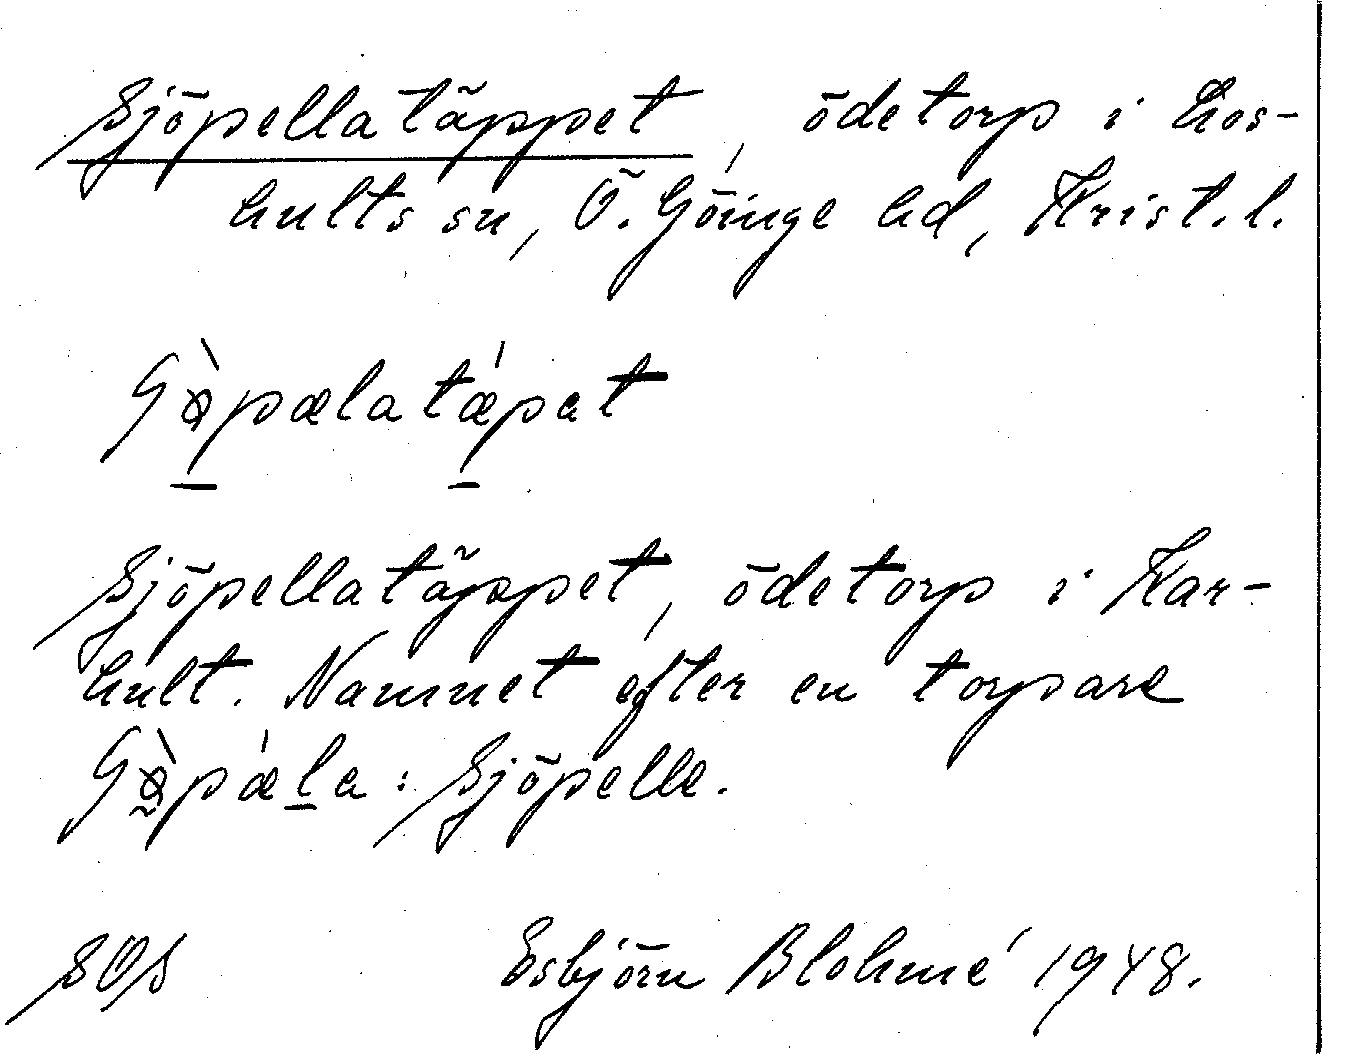 Sjöpellatäppet, ödetorp i Los-
hults sn, Ö. Göinge hd, Krist. l.
Sjöpellatäppet, ödetorp i Kar-
hult. Namnet efter en torpare
: Sjöpelle.
SOS Esbjörn Blohmé 1948.